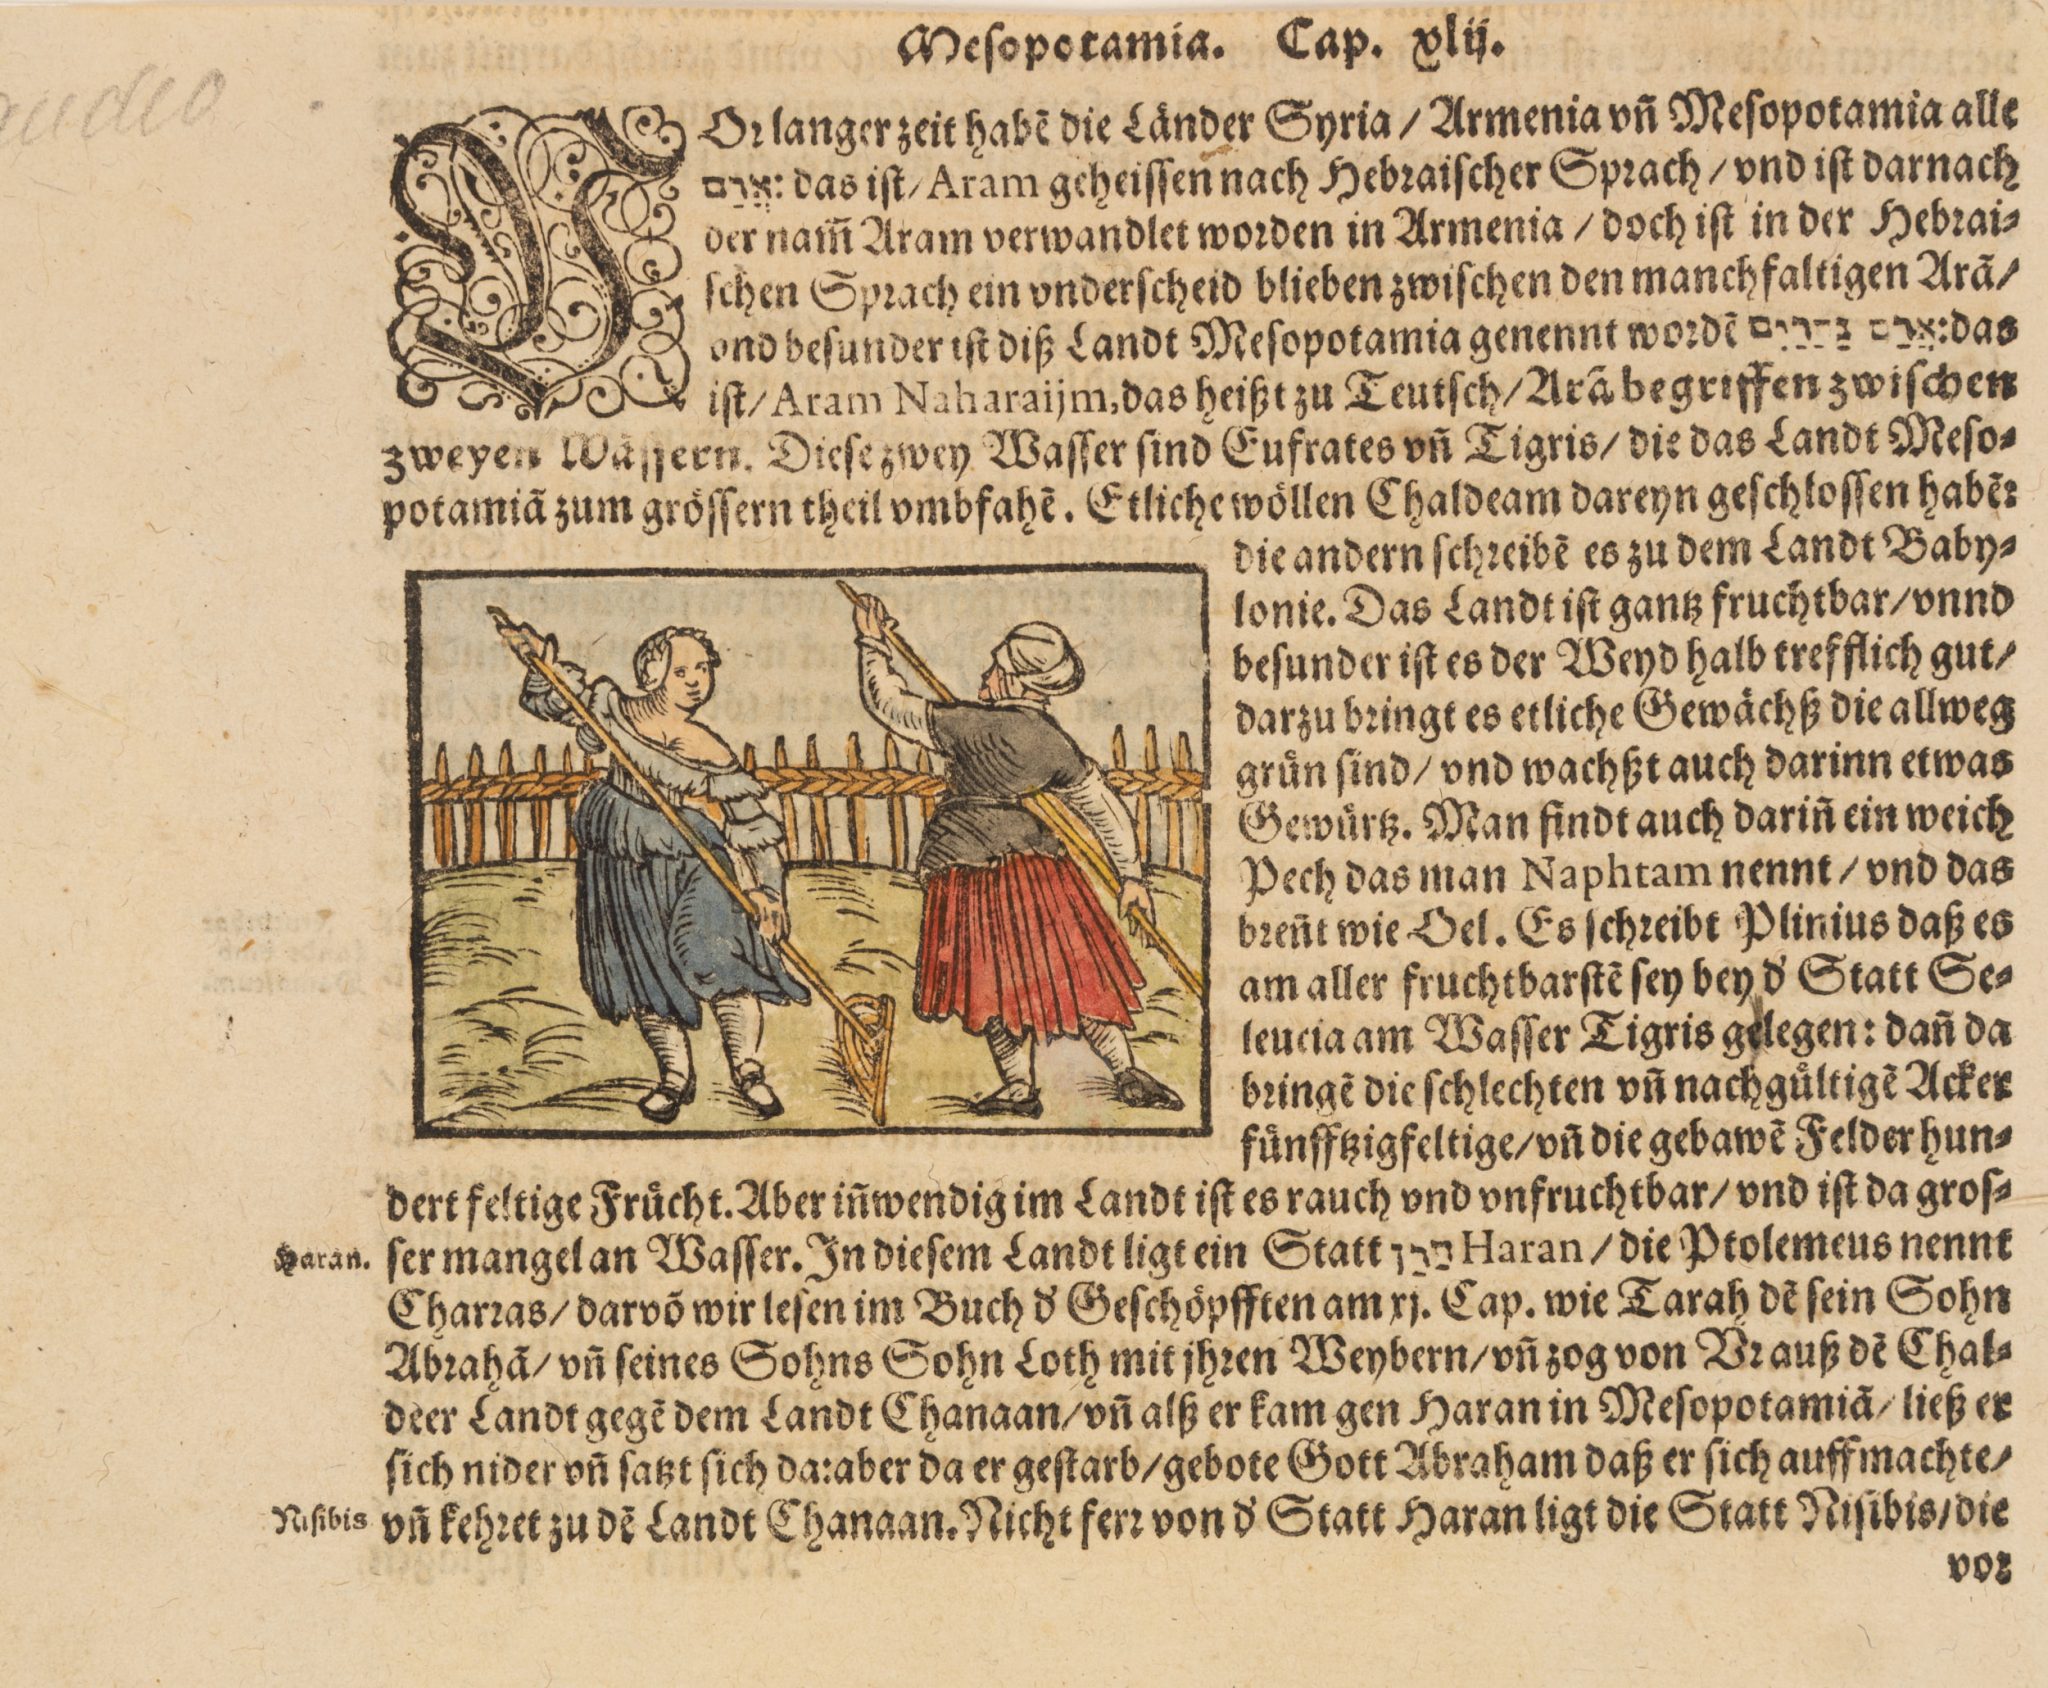 Mesopotamia. Cap. xlij.
VOr langer zeit habẽ die Länder Syria / Armenia vñ Mesopotamia alle
אֲרָם: das ist / Aram geheissen nach Hebraischer Sprach / vnd ist darnach
der nam̃ Aram verwandlet worden in Armenia / doch ist in der Hebrai-
schen Sprach ein vnderscheid blieben zwischen den manchfaltigen Arã /
vnd besunder ist diß Landt Mesopotamia genennt wordẽ אֲרַם נַהֲרַיִם: das
ist / Aram Naharaijm, das heißt zu Teutsch / Arã begriffen zwischen
zweyen Wässern. Diese zwey Wasser sind Eufrates vñ Tigris / die das Landt Meso-
potamiã zum grössern theil vmbfahẽ. Etliche wöllen Chaldeam dareyn geschlossen habẽ:
die andern schreibẽ es zu dem Landt Baby-
lonie. Das Landt ist gantz fruchtbar / vnnd
besunder ist es der Weyd halb trefflich gut /
darzu bringt es etliche Gewächß die allweg
grün sind / vnd wachßt auch darinn etwas
Gewürtz. Man findt auch dariñ ein weich
Pech das man Naphtam nennt / vnd das
breñt wie Oel. Es schreibt Plinius daß es
am aller fruchtbarstẽ sey bey d' Statt Se-
leucia am Wasser Tigris gelegen: dañ da
bringẽ die schlechten vñ nachgültigẽ Acker
fünfftzigfeltige / vñ die gebawẽ Felder hun-
dert feltige Frücht. Aber iñwendig im Landt ist es rauch vnd vnfruchtbar / vnd ist da gros-
Haran.
ser mangel an Wasser. In diesem Landt ligt ein Statt חרן Haran / die Ptolemeus nennt
Charras / darvõ wir lesen im Buch d' Geschöpfften am xj. Cap. wie Tarah dẽ sein Sohn
Abrahã / vñ seines Sohns Sohn Loth mit jhren Weybern / vñ zog von Vr auß dẽ Chal-
deer Landt gegẽ dem Landt Chanaan / vñ alß er kam gen Haran in Mesopotamiã / ließ er
sich nider vñ satzt sich da: aber da er gestarb / gebote Gott Abraham daß er sich auffmachte /
Nisibis
vñ kehret zu dẽ Landt Chanaan. Nicht ferr von d' Statt Haran ligt die Statt Nisibis / die
vor